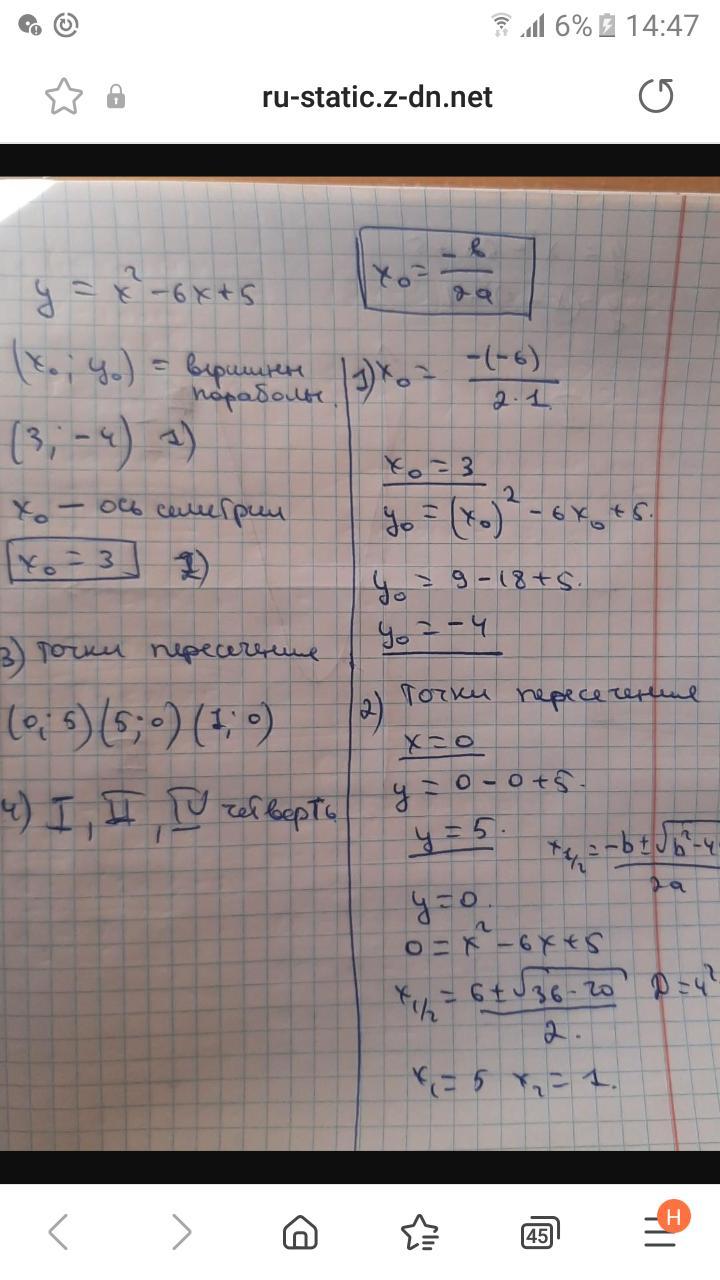 6% 14:47
ru-static.z-dn.net
y = x² - 6x + 5
(x₀; y₀) = вершины
параболы.
(3; -4) 1)
x₀ — ось симетрии
x₀ = 3 2)
3) точки пересечение
(0; 5) (5; 0) (1; 0)
4) I, II, IV четверть
x₀ = -в/2a
1) x₀ = -(-6)/2·1
x₀ = 3
y₀ = (x₀)² - 6x₀ + 5.
y₀ = 9 - 18 + 5.
y₀ = -4
2) Точки пересечение
x = 0
y = 0 - 0 + 5.
y = 5.
x₁/₂ = -b ± √b² - 4/2a
y = 0.
0 = x² - 6x + 5
x₁/₂ = 6 ± √36 - 20/2. D = 4²
x₁ = 5 x₂ = 1.
45
H